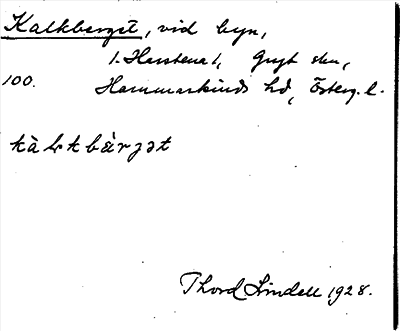 Kalkberget, vid byn,
1. Harstena 1, Gryt skn,
100. Hammarkinds hd, Österg. l.
kàlkbàrjət
Thord Lindell 1928.